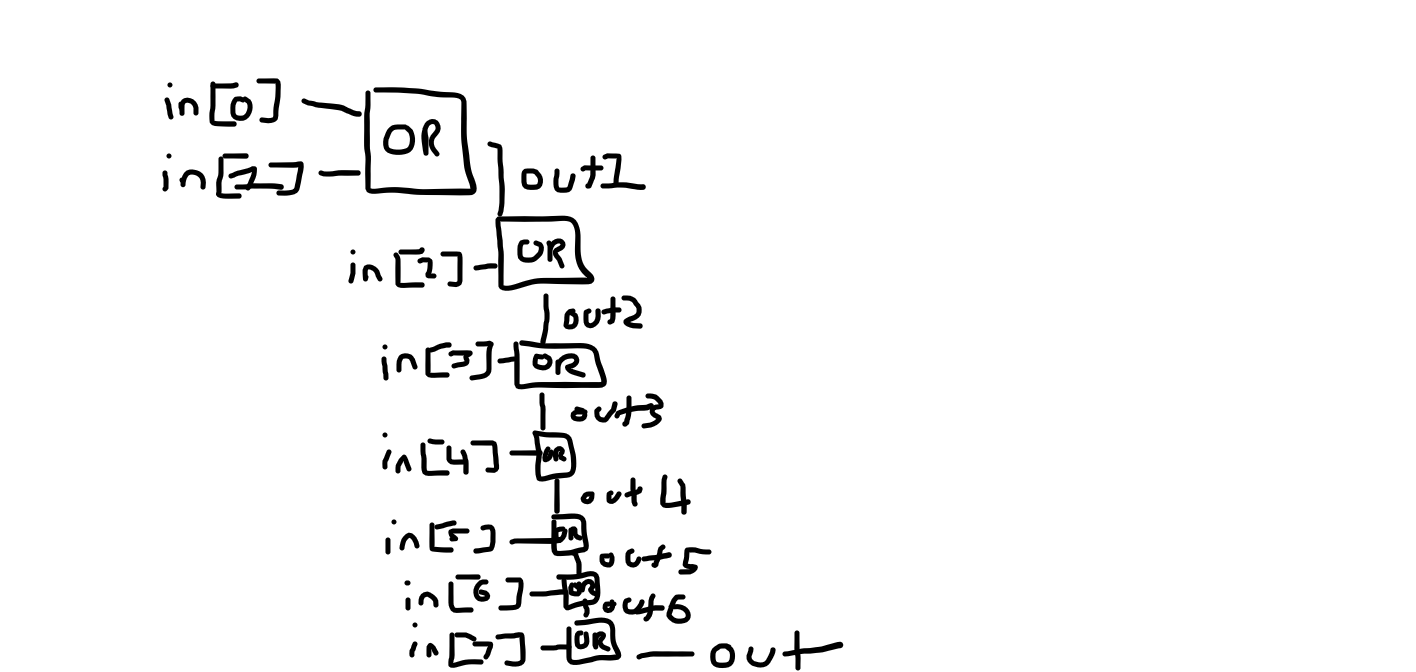 in[0] OR
in[1] out1
in[2] OR
out2
in[3] OR
out3
in[4] OR
out 4
in[5] OR
out 5
in[6] OR
out6
in[7] OR out